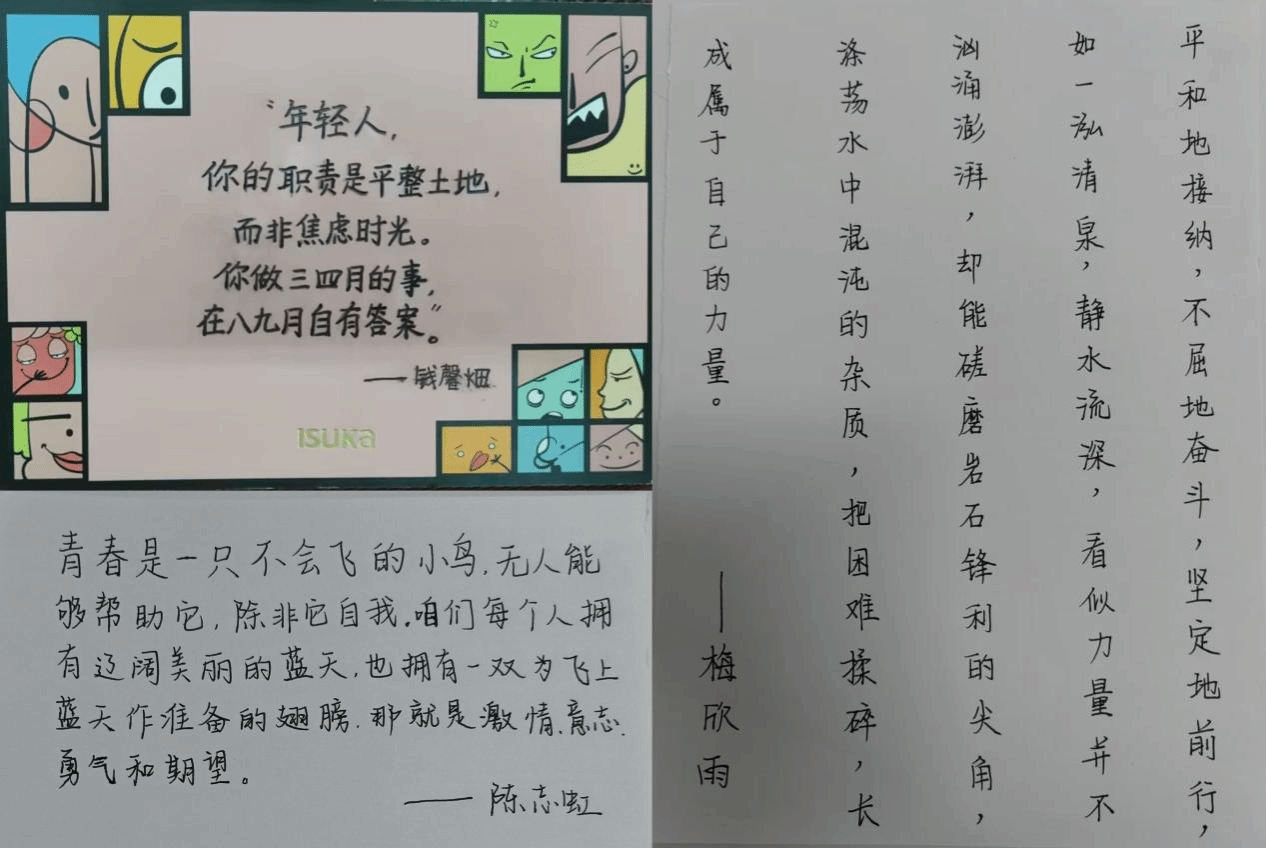 “年轻人,
你的职责是平整土地,
而非焦虑时光。
你做三四月的事,
在八九月自有答案”。
——钱馨畑
ISUKA
青春是一只不会飞的小鸟,无人能
够帮助它,除非它自我。咱们每个人拥
有辽阔美丽的蓝天,也拥有一双为飞上
蓝天作准备的翅膀,那就是激情、意志、
勇气和期望。
——陈志虹
平和地接纳,不屈地奋斗,坚定地前行,
如一泓清泉,静水流深,看似力量并不
汹涌澎湃,却能磋磨岩石锋利的尖角,
涤荡水中混沌的杂质,把困难揉碎,长
成属于自己的力量。
——梅欣雨